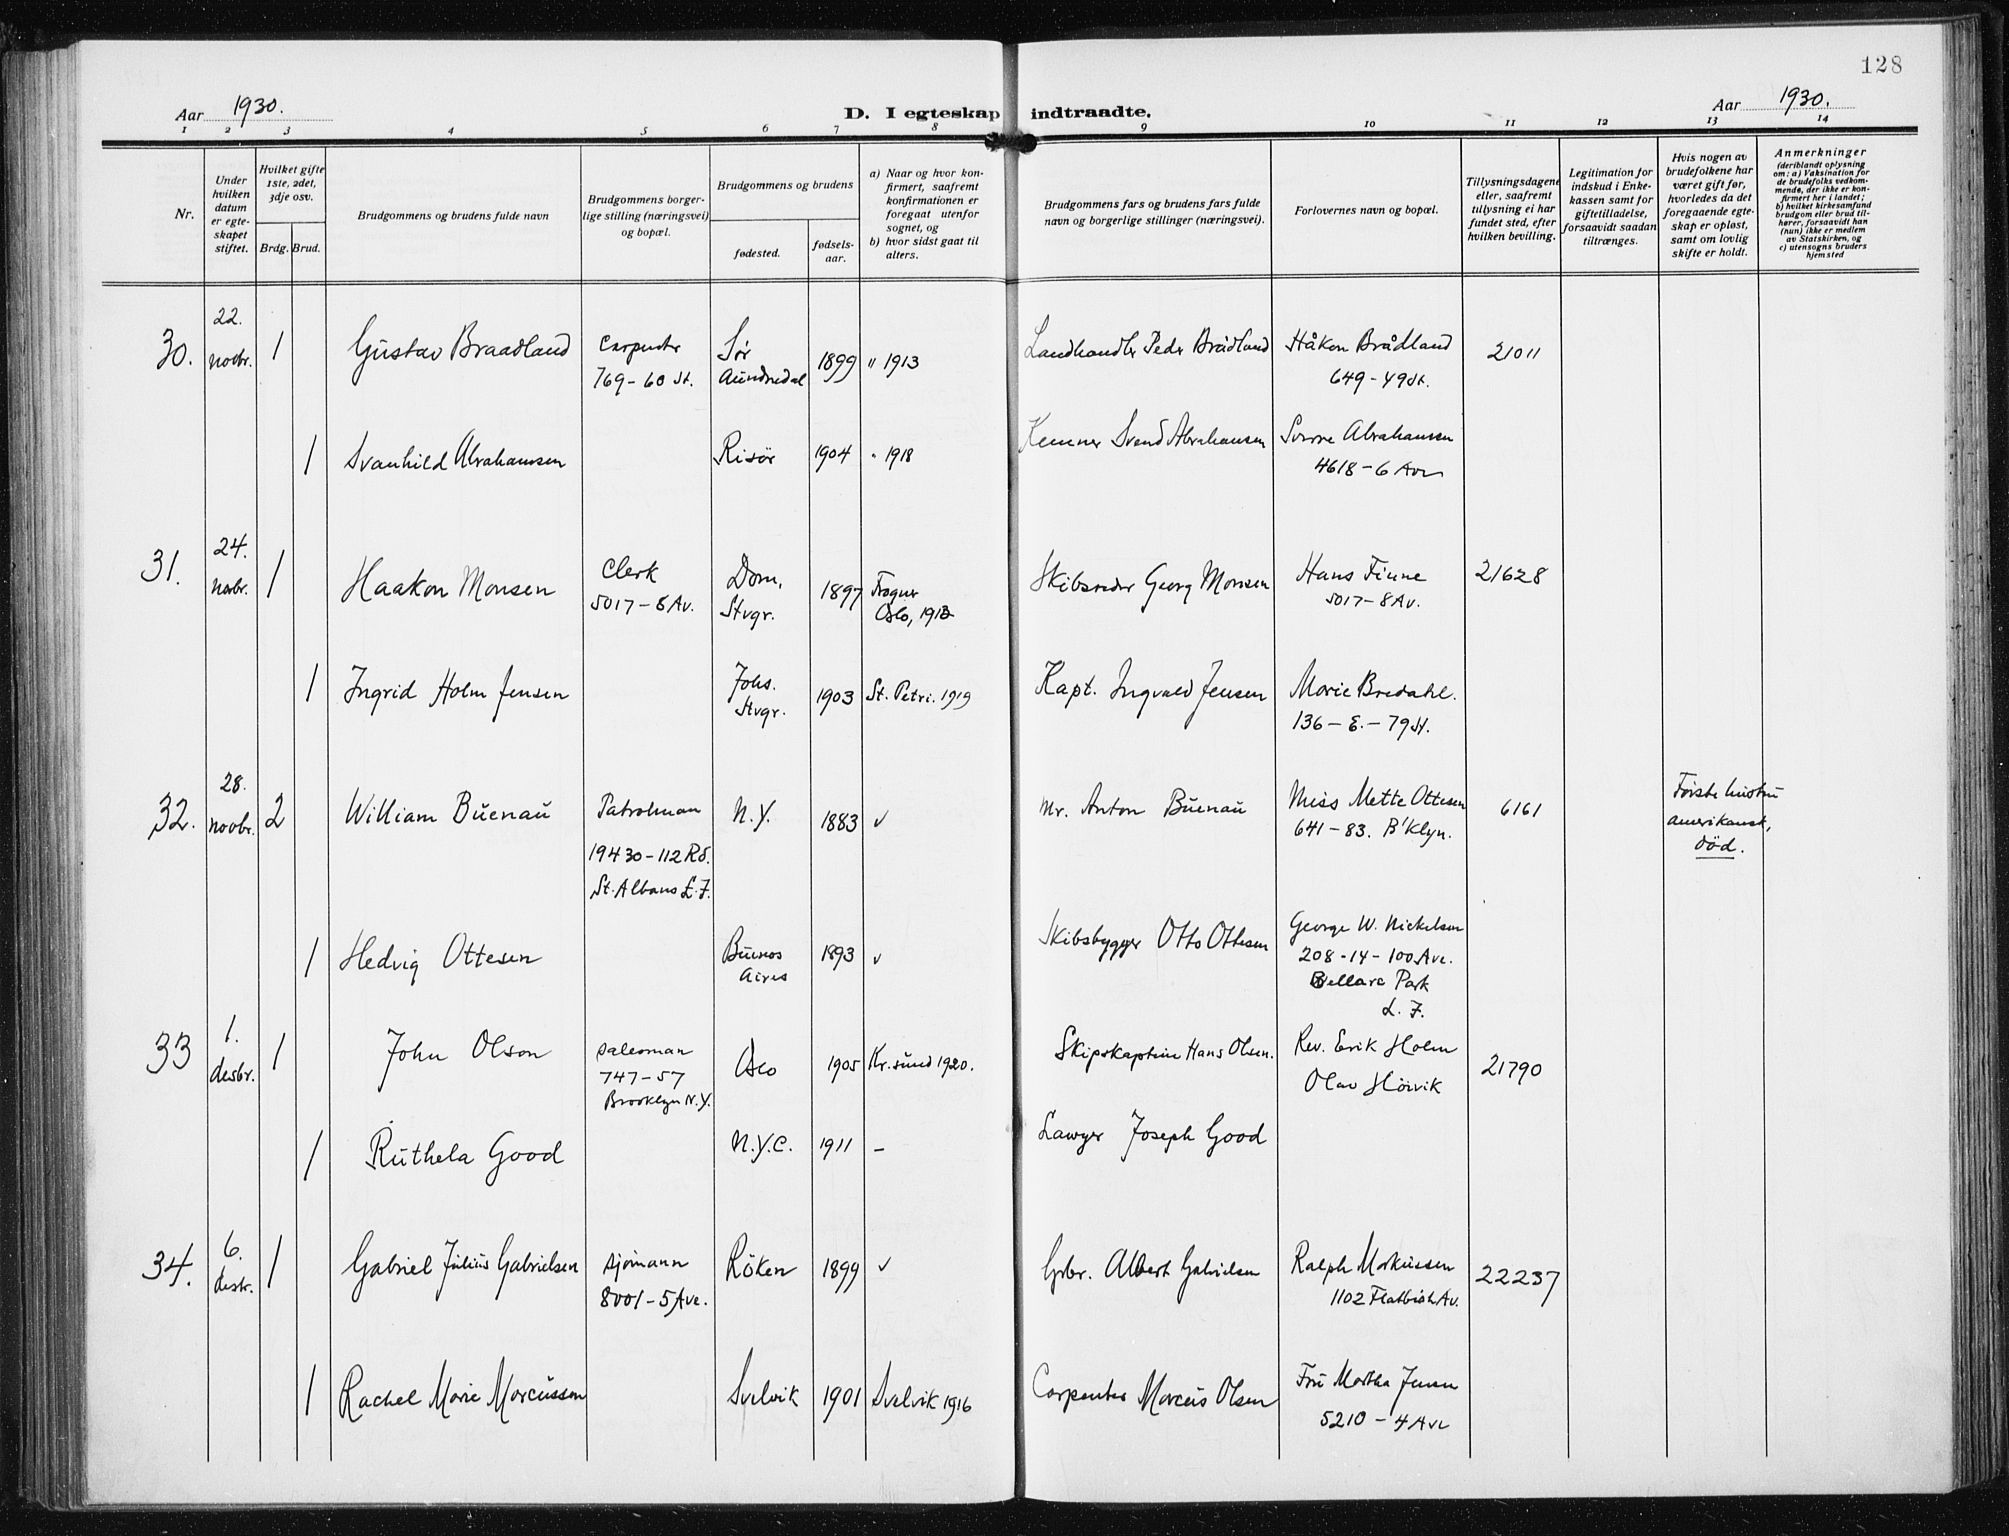 128
Aar 1930.
D. I egteskap indtraadte.
Aar 1930.
1 2 3 4 5 6 7 8 9 10 11 12 13 14
Nr.
Under
hvilken
datum
er egte-
skapet
stiftet.
Hvilket gifte
1ste, 2det,
3dje osv.
Brdg. Brud.
Brudgommens og brudens fulde navn
Brudgommens borger-
lige stilling (næringsvei)
og bopæl.
Brudgommens og brudens
fødested.
fødsels-
aar.
a) Naar og hvor kon-
firmert, saafremt
konfirmationen er
foregaat utenfor
sognet, og
b) hvor sidst gaat til
alters.
Brudgommens fars og brudens fars fulde
navn og borgerlige stillinger (næringsvei).
Forlovernes navn og bopæl.
Tillysningsdagene
eller, saafremt
tillysning ei har
fundet sted, efter
hvilken bevilling.
Legitimation for
indskud i Enke-
kassen samt for
giftetilladelse,
forsaavidt saadan
tiltrænges.
Hvis nogen av
brudefolkene har
været gift før,
hvorledes da det
foregaaende egte-
skap er opløst,
samt om lovlig
skifte er holdt.
Anmerkninger
(deriblandt oplysning
om: a) Vaksination for
de brudefolks vedkom-
mende, der ikke er kon-
firmert her i landet;
b) hvilket kirkesamfund
brudgom eller brud til-
hører, forsaavidt han
(hun) ikke er medlem
av Statskirken, og
c) utensogns bruders
hjemsted
30.
22.
novbr.
1
Gustav Braadland
Carpenter
769 - 60 St.
Sør
Aundnedal
1899
" 1913
Landhandler Peder Brådland
Håkon Brådland
649 - 49 St.
21011
1
Svanhild Abrahamsen
Risör
1904
" 1918
Kemner Svend Abrahamsen
Sverre Abrahamsen
4618 - 6 Ave
31.
24.
novbr.
1
Haakon Monsen
Clerk
5017 - 8 Av.
Dom,
Stvgr.
1897
Frogner
Oslo, 1912
Skibsreder Georg Monsen
Hans Finne
5017 - 8 Av.
21628
1
Ingrid Holm Jensen
Johs.
Stvgr.
1903
St. Petri. 1919
Kapt. Ingvald Jensen
Marie Bredahl.
136 - E. - 79 St.
32.
28.
novbr.
2
William Buenau
Patrolman
19430 - 112 Rd.
St. Albans L.I.
N.Y.
1883
✓
Mr. Anton Buenau
Miss Mette Ottesen
641 - 83. B'klyn.
6161
Første hustru
amerikansk,
død.
1
Hedvig Ottesen
Buenos
Aires
1893
✓
Skibsbygger Otto Ottesen
George W. Nickelson
208 - 14 - 100 Ave.
Bellare Park
L. I.
33
1.
desbr.
1
John Olson
Salesman
747 - 57
Brooklyn N.Y.
Oslo
1905
Kr.sund 1920.
Skipskaptein Hans Olsen.
Rev. Erik Holm
Olav Höivik
21790
1
Ruthela Good
N.Y.C.
1911
-
Lawyer Joseph Good
34.
6.
desbr.
1
Gabriel Julius Gabrielsen
Sjömann
8001 - 5 Ave.
Röken
1899
✓
Grbr. Albert Gabrielsen
Ralph Markussen
1102 Flatbush Av.
22237
1
Rachel Marie Marcussen
Svelvik
1901
Svelvik 1916
Carpenter Marcus Olsen
Fru Martha Jensen
5210 - 4 Ave